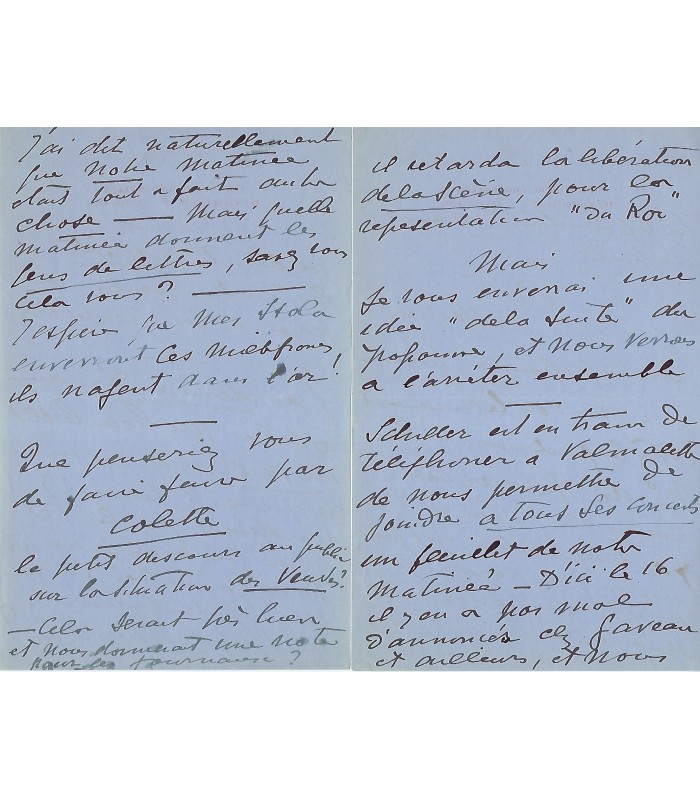 J'ai dit naturellement
que notre matinée
était tout à fait autre
chose — Mais quelle
matinée donnent les
gens de lettres, savez vous
cela vous ? —
J'espère que Mes
enverront ces mille francs,
ils nagent dans l'or !
Que penseriez vous
de faire faire par
Colette
le petit discours au public
sur la situation des Veuves ?
— Cela serait très bien
et nous donnerait une note
pour les journaux ?
il retarda la libération
de la scène, pour la
représentation "du Roi"
Mais
Je vous enverrai une
idée "de la suite" du
programme, et nous verrons
a l'arrêter ensemble
Schuller est en train de
téléphoner a Valmalette
de nous permettre de
joindre a tous ses concerts
un feuillet de notre
Matinée — D'ici le 16
il y en a pas mal
d'annoncés chez Gaveau
et ailleurs, et nous